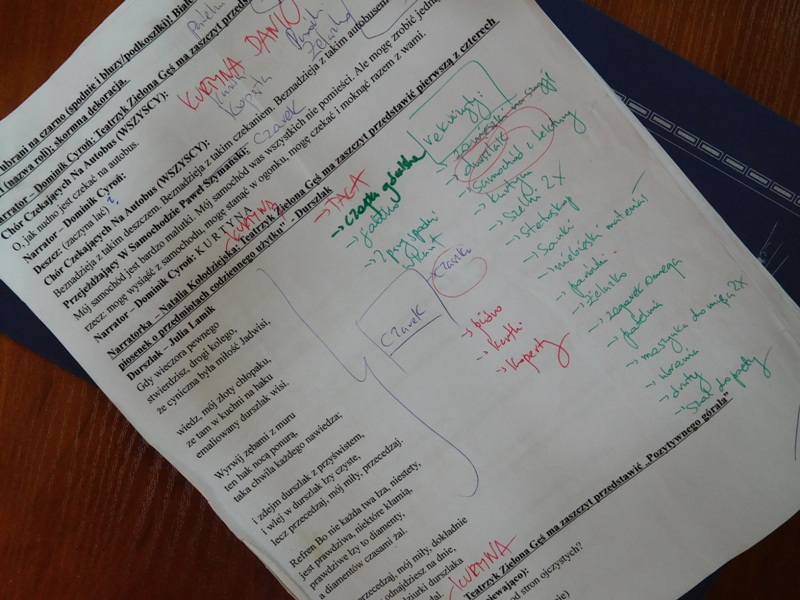 ubrani na czarno (spodnie i bluzy/podkoszulki)
(nazwa roli); skromna dekoracja.
KURTYNA DANIO
Narrator – Dominik Cyroń: Teatrzyk Zielona Gęś ma zaszczyt
Chór Czekających Na Autobus (WSZYSCY):
O, jak nudno jest czekać na autobus.
Narrator – Dominik Cyroń:
Deszcz (zaczyna lać)
Chór Czekających Na Autobus (WSZYSCY): Beznadzieja z takim czekaniem. Beznadzieja z takim autobusem.
Beznadzieja z takim deszczem.
Czarek
Przejeżdżający W Samochodzie Paweł Szymański:
Mój samochód jest bardzo malutki. Mój samochód was wszystkich nie pomieści. Ale mogę zrobić jedną
rzecz: mogę wysiąść z samochodu, mogę stanąć w ogonku, mogę czekać i moknąć razem z wami.
Narrator – Dominik Cyroń: K U R T Y N A
KURTYNA
Narratorka – Natalia Kołodziejska: Teatrzyk Zielona Gęś ma zaszczyt przedstawić pierwszą z czterech
piosenek o przedmiotach codziennego użytku" - Durszlak
Durszlak – Julia Lamik
Gdy wieczora pewnego
stwierdzisz, drogi kolego,
że cyniczna była miłość Jadwisi,
wiedz, mój złoty chłopaku,
że tam w kuchni na haku
emaliowany durszlak wisi.
Wyrwij zębami z muru
ten hak nocą ponurą,
taka chwila każdego nawiedza;
i zdejm durszlak z przyświstem,
i wlej w durszlak łzy czyste,
lecz przecedzaj, mój miły, przecedzaj.
Refren Bo nie każda twa łza, niestety,
jest prawdziwa, niektóre kłamią,
prawdziwe łzy to diamenty,
a diamentów czasami żal.
przecedzaj, mój miły, dokładnie
odnajdziesz na dnie,
durszlaka
KURTYNA
Teatrzyk Zielona Gęś ma zaszczyt przedstawić „Pozytywnego górala"
stron ojczystych?
Czarek
→ TACA
→ czapka góralska
→ jabłko
rekwizyty:
→ durszlak
→ Samochód z tektury
→ kurtyna
→ Szelki 2X
→ Stetoskop
→ Sanki
→ niebieski materiał
→ parasolki
→ żelazko
→ zegarek omega
→ maszynka do mięsa 2X
→ ubrania
→ druty
→ biurko
→ kartki
→ koperty